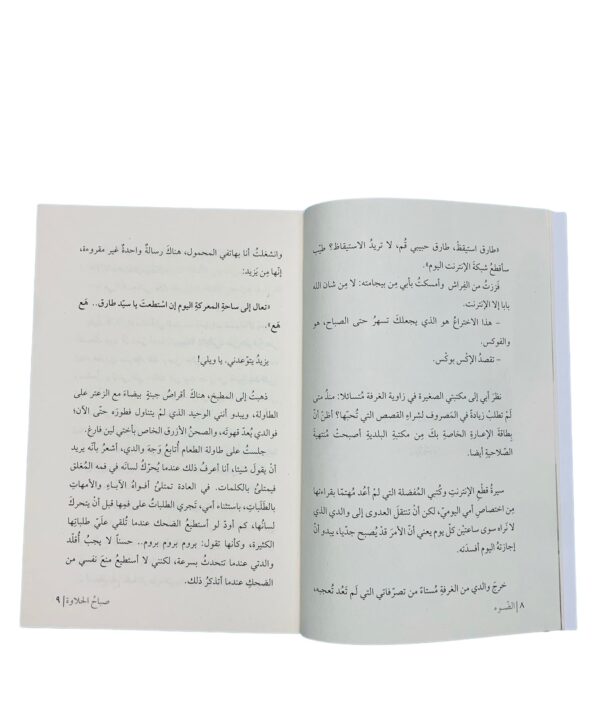 «طارق استيقظْ، طارق حبيبي قُم، لا تريدُ الاستيقاظ؟ طيّب
سأقطعُ شبكةَ الإنترنت اليوم».
قَفزتُ من الفِراش وأمسكتُ بأبي مِن بيجامته: لا مِن شان الله
بابا إلا الإنترنت.
– هذا الاختراعُ هو الذي يجعلكَ تسهرُ حتى الصباح، هو
والفوكس.
– تقصدُ الإكْس بوكْس.
نظرَ أبي إلى مكتبتي الصغيرة في زاوية الغرفة مُتسائلا: منذُ متى
لَمْ تطلبْ زيادةً في المَصروف لشراءِ القصص التي تُحبّها؟ أظنّ أنّ
بِطاقةَ الإعـارةِ الخاصة بكَ مِن مكتبةِ البلديةِ أصبحتْ مُنتهيةَ
الصّلاحيةِ أيضا.
سيرةُ قَطْعِ الإنترنتِ وكُتبي المُفضلة التي لمْ أعُد مُهتمّا بقراءتها
مِن اختصاصِ أمي اليوميّ، لكن أنْ تنتقلَ العدوى إلى والدي الذي
لا نَراه سوى ساعتيْن كلّ يوم يعني أنّ الأمرَ قدْ يُصبح جدّيا، يبدو أنّ
إجازتهُ اليوم أفسدَته.
خرجَ والدي من الغرفةِ مُستاءً من تصرّفاتي التي لَم تَعُد تُعجبه،
٨ | الضّوء
وانشغلتُ أنا بهاتفي المحمول، هناكَ رسالةٌ واحدةٌ غير مقروءة،
إنّها مِن يَزيد:
«تعال إلى ساحةِ المعركةِ اليوم إن اسْتطعتَ يا سيّد طارق.. هَع
هَع».
يزيدُ يتوّعدني. يا ويلي!
ذهبتُ إلى المطبخ، هناكَ أقراصُ جبنةٍ بيضاءَ مع الزعتر على
الطاولة، ويبدو أنني الوحيد الذي لمْ يتناول فطورَه حتّى الآن؛
فوالدي يُعدّ قهوتَه، والصحنُ الأزرق الخاص بأختي لين فارغ.
جلستُ على طاولة الطعام أُتابعُ وَجهَ والدي، أشعرُ بأنّه يريد
أنْ يقولَ شيئا، أنا أعرفُ ذلك عندما يُحرّكُ لسانَه في فمه المُغلق
فيمتلئُ بالكلمات. في العادة تمتلئُ أفـواهُ الآبـاءِ والأمهاتِ
بالطّلَباتِ، باستثناء أمي، تجري الطلباتُ على فمِها قبل أنْ يتحركَ
لسانُها، كم أودّ لو أستطيعُ الضحك عندما تُلقي علَيّ طلباتِها
الكثيرة، وكأنها تقول: بروم بروم بروم.. حسناً لا يجبُ أنْ أُقلّد
والدتي عندما تتحدثُ بسرعة، لكنني.. لا أستطيعُ منعَ نفسي من
الضحكِ عندما أتذكرُ ذلك.
صباحُ الحَلاوة | ٩